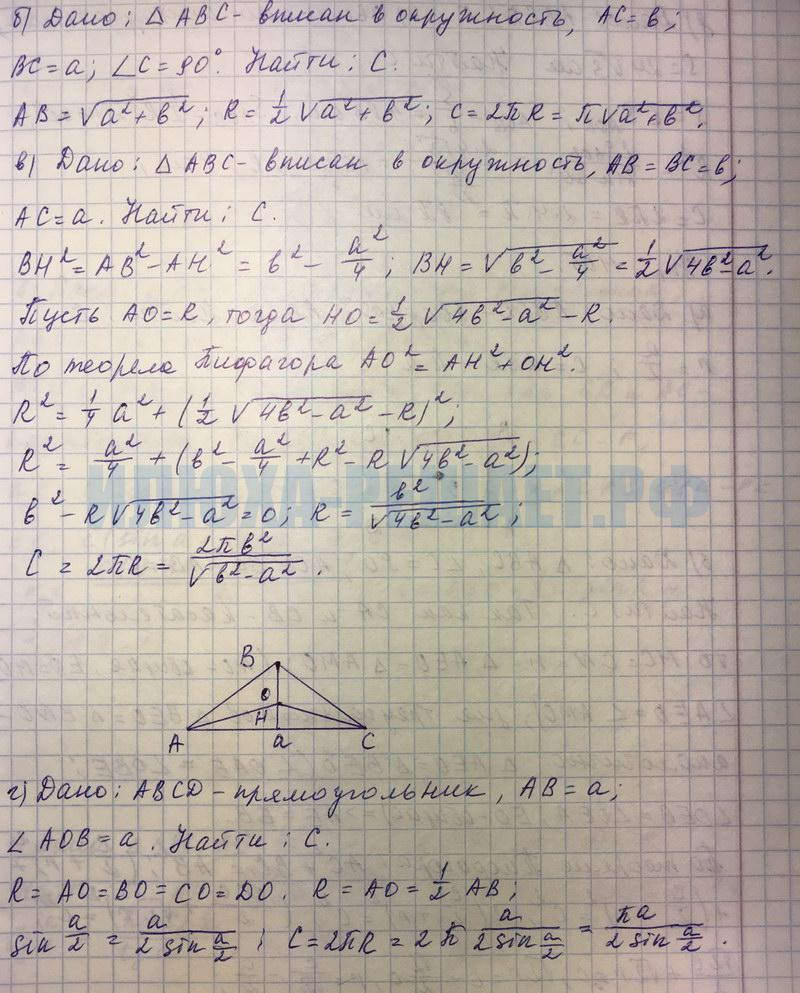 б) Дано: △ ABC - вписан в окружность, AC = b;
BC = a; ∠C = 90°. Найти: C.
AB = √(a² + b²); R = 1/2 √(a² + b²); C = 2πR = π√(a² + b²).
в) Дано: △ ABC - вписан в окружность, AB = BC = b;
AC = a. Найти: C.
BH² = AB² - AH² = b² - a²/4; BH = √(b² - a²/4) = 1/2 √(4b² - a²).
Пусть AO = R, тогда HO = 1/2 √(4b² - a²) - R
По теорела Пифагора AO² = AH² + OH².
R² = 1/4 a² + (1/2 √(4b² - a²) - R)²;
R² = a²/4 + (b² - a²/4 + R² - R √(4b² - a²));
ИЛЮХА-РЕШЕТ.РФ
b² - R √(4b² - a²) = 0; R = b²/√(4b² - a²);
C = 2πR = 2πb²/√(b² - a²).
B
O
H
A a C
г) Дано: ABCD - прямоугольник, AB = a;
∠ AOB = a. Найти: C.
R = AO = BO = CO = DO. R = AO = 1/2 AB;
sin a/2 = a/(2 sin a/2); C = 2πR = 2π a/(2 sin a/2) = πa/(2 sin a/2).